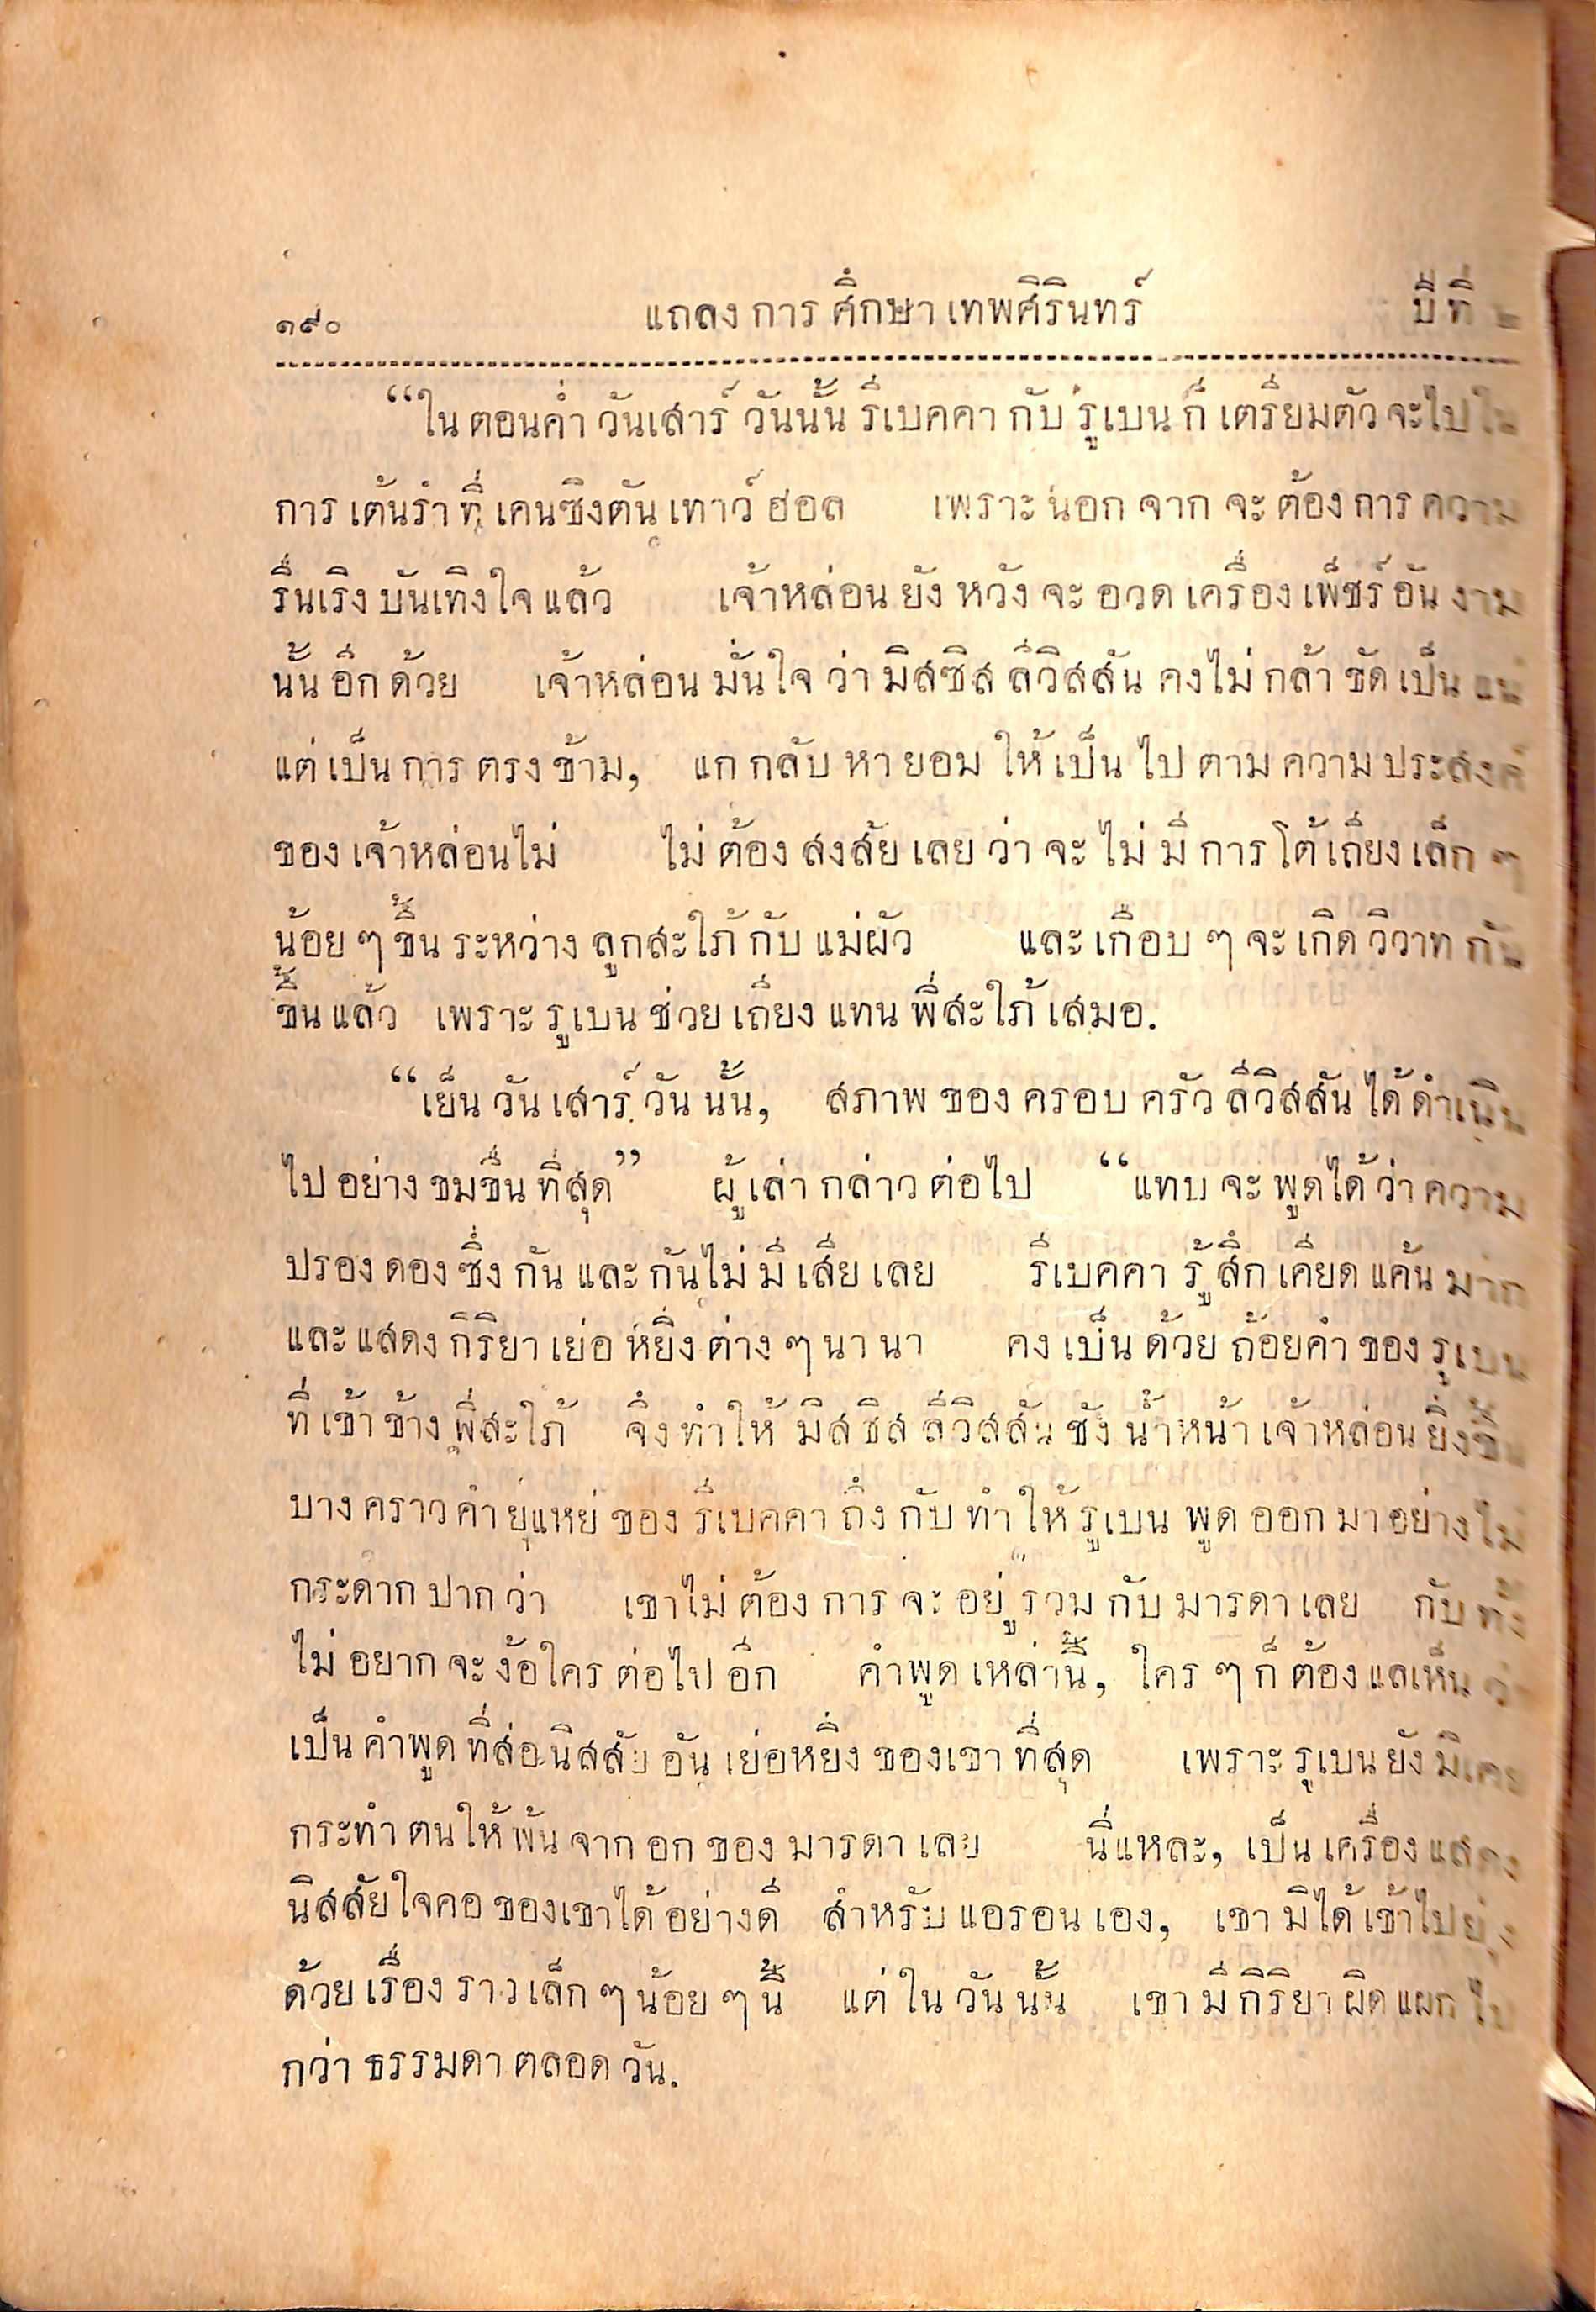 ๑๙๐ แถลงการศึกษาเทพศิรินทร์ ปีที่ ๒
“ในตอนค่ำวันเสาร์วันนั้น รีเบคคากับรูเบนก็เตรียมตัวจะไปใน
การเต้นรำที่เคนซิงตันเทาว์ฮอล เพราะนอกจากจะต้องการความ
รื่นเริงบันเทิงใจแล้ว เจ้าหล่อนยังหวังจะอวดเครื่องเพ็ชร์อันงาม
นั้นอีกด้วย เจ้าหล่อนมั่นใจว่ามิสซิสลีวิสสันคงไม่กล้าขัดเป็นแน่
แต่เป็นการตรงข้าม, แกกลับหายอมให้เป็นไปตามความประสงค์
ของเจ้าหล่อนไม่ ไม่ต้องสงสัยเลยว่าจะไม่มีการโต้เถียงเล็กๆ
น้อยๆขึ้นระหว่างลูกสะใภ้กับแม่ผัว และเกือบๆจะเกิดวิวาทกัน
ขึ้นแล้ว เพราะรูเบนช่วยเถียงแทนพี่สะใภ้เสมอ.
“เย็นวันเสาร์วันนั้น, สภาพของครอบครัวลีวิสสันได้ดำเนิน
ไปอย่างขมขื่นที่สุด” ผู้เล่ากล่าวต่อไป “แทบจะพูดได้ว่าความ
ปรองดองซึ่งกันและกันไม่มีเสียเลย รีเบคคารู้สึกเคียดแค้นมาก
และแสดงกิริยาเย่อหยิ่งต่างๆนานา คงเป็นด้วยถ้อยคำของรูเบน
ที่เข้าข้างพี่สะใภ้ จึงทำให้มิสซิสลีวิสสันชังน้ำหน้าเจ้าหล่อนยิ่งขึ้น
บางคราวคำยุแหย่ของรีเบคคาถึงกับทำให้รูเบนพูดออกมาอย่างไม่
กระดากปากว่า เขาไม่ต้องการจะอยู่ร่วมกับมารดาเลย กับทั้ง
ไม่อยากจะง้อใครต่อไปอีก คำพูดเหล่านี้, ใครๆก็ต้องแลเห็นว่า
เป็นคำพูดที่ส่อนิสสัยอันเย่อหยิ่งของเขาที่สุด เพราะรูเบนยังมิเคย
กระทำตนให้พ้นจากอกของมารดาเลย นี่แหละ, เป็นเครื่องแสดง
นิสสัยใจคอของเขาได้อย่างดี สำหรับแอรอนเอง, เขามิได้เข้าไปยุ่ง
ด้วยเรื่องราวเล็กๆน้อยๆนี้ แต่ในวันนั้น เขามีกิริยาผิดแผกไป
กว่าธรรมดาตลอดวัน.